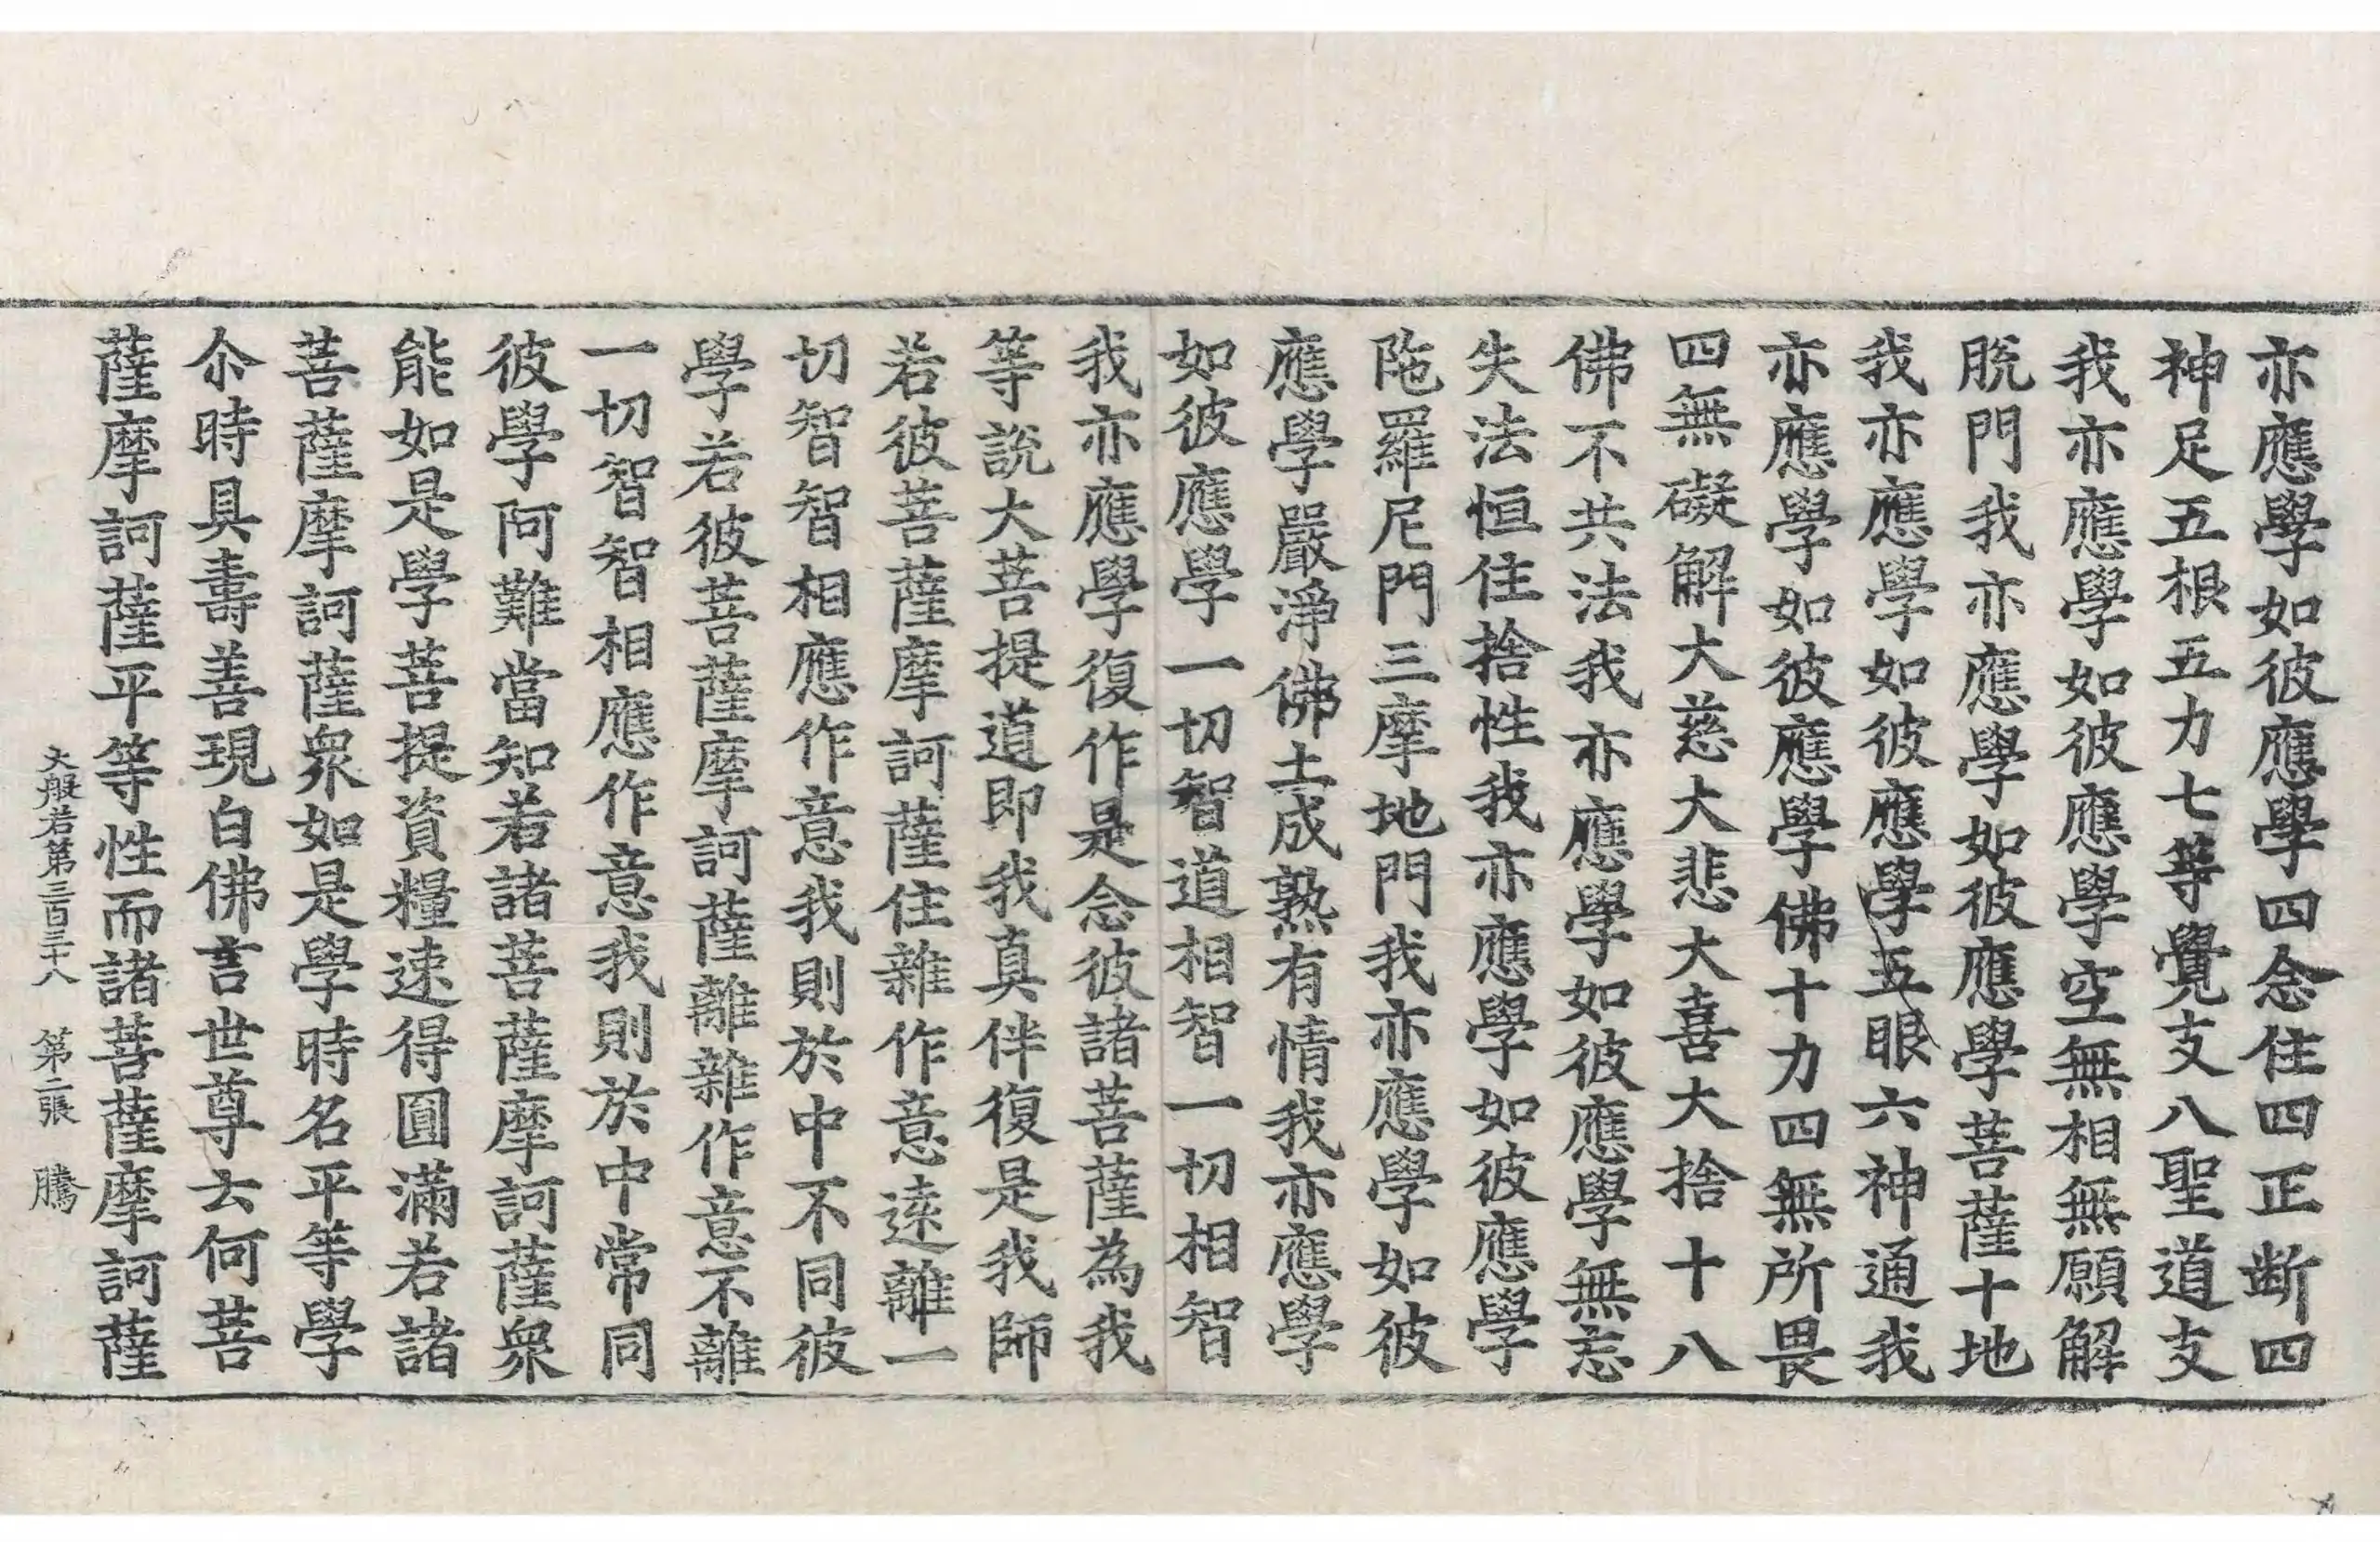 亦應學如彼應學四念住四正断四
神足五根五力七等覺支八聖道支
我亦應學如彼應學空無相無願解
脫門我亦應學如彼應學菩薩十地
我亦應學如彼應學五眼六神通我
亦應學如彼應學佛十力四無所畏
四無礙解大慈大悲大喜大捨十八
佛不共法我亦應學如彼應學無忘
失法恒住捨性我亦應學如彼應學
陁羅尼門三摩地門我亦應學如彼
應學嚴淨佛土成熟有情我亦應學
如彼應學一切智道相智一切相智
我亦應學復作是念彼諸菩薩為我
等說大菩提道即我真伴復是我師
若彼菩薩摩訶薩住雜作意遠離一
切智智相應作意我則於中不同彼
學若彼菩薩摩訶薩離雜作意不離
一切智智相應作意我則於中常同
彼學阿難當知若諸菩薩摩訶薩衆
能如是學菩提資糧速得圓滿若諸
菩薩摩訶薩衆如是學時名平等學
尒時具壽善現白佛言世尊云何菩
薩摩訶薩平等性而諸菩薩摩訶薩
大般若第三百三十八 第二張 騰